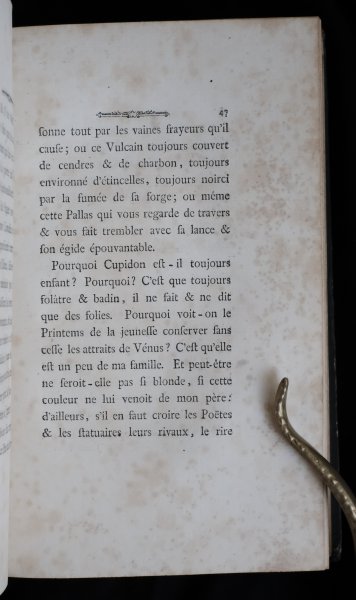 47
sonne tout par les vaines frayeurs qu'il
cause; ou ce Vulcain toujours couvert
de cendres & de charbon, toujours
environné d'étincelles, toujours noirci
par la fumée de sa forge; ou même
cette Pallas qui vous regarde de travers
& vous fait trembler avec sa lance &
son égide épouvantable.
Pourquoi Cupidon est-il toujours
enfant? Pourquoi? C'est que toujours
folâtre & badin, il ne fait & ne dit
que des folies. Pourquoi voit-on le
Printems de la jeunesse conserver sans
cesse les attraits de Vénus? C'est qu'elle
est un peu de ma famille. Et peut-être
ne seroit-elle pas si blonde, si cette
couleur ne lui venoit de mon père:
d'ailleurs, s'il en faut croire les Poëtes
& les statuaires leurs rivaux, le rire